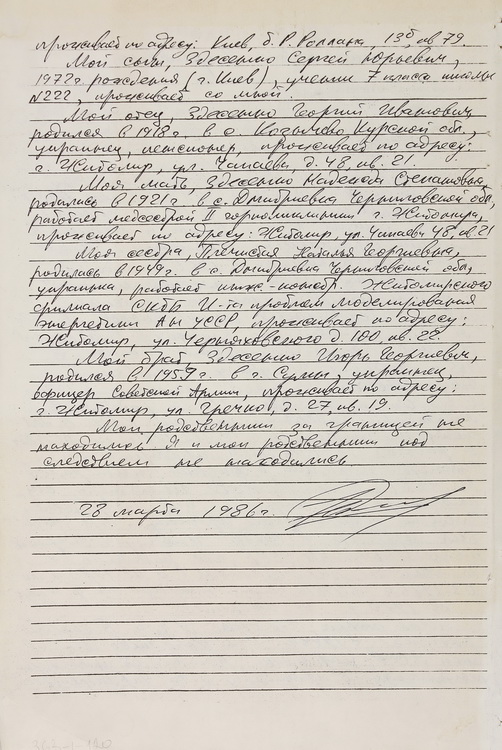 проживает по адресу: Киев, б. Р. Роллана, 13б, кв 79.
Мой сын, Здесенко Сергей Юрьевич,
1972г рождения (г. Киев), ученик 7 класса школы
N222, проживает со мной.
Мой отец, Здесенко Георгий Иванович
родился в 1918г. в с. Козычево Курской обл.,
украинец, пенсионер, проживает по адресу:
г. Житомир, ул. Чапаева, д. 48, кв. 21.
Моя мать, Здесенко Надежда Степановна,
родилась в 1921г. в с. Дмитриевка Черниговской обл,
работает медсестрой II горполиклиники г. Житомира,
проживает по адресу: Житомир, ул. Чапаева 48, кв. 21
Моя сестра, Наталья Георгиевна,
родилась в 1949г. в с. Дмитриевка Черниговской обл,
украинка, работает инж.-констр. Житомирского
филиала СКТБ И-та проблем моделирования
энергетики АН УССР, проживает по адресу:
Житомир, ул. Черняховского д. 100, кв. 22.
Мой брат, Здесенко Игорь Георгиевич,
родился в 1959г. в г. Сумы, украинец,
офицер Советской Армии, проживает по адресу:
г. Житомир, ул. Гречко, д. 27, кв. 19.
Мои родственники за границей не
находились. Я и мои родственники под
следствием не находились
23 марта 1986г.